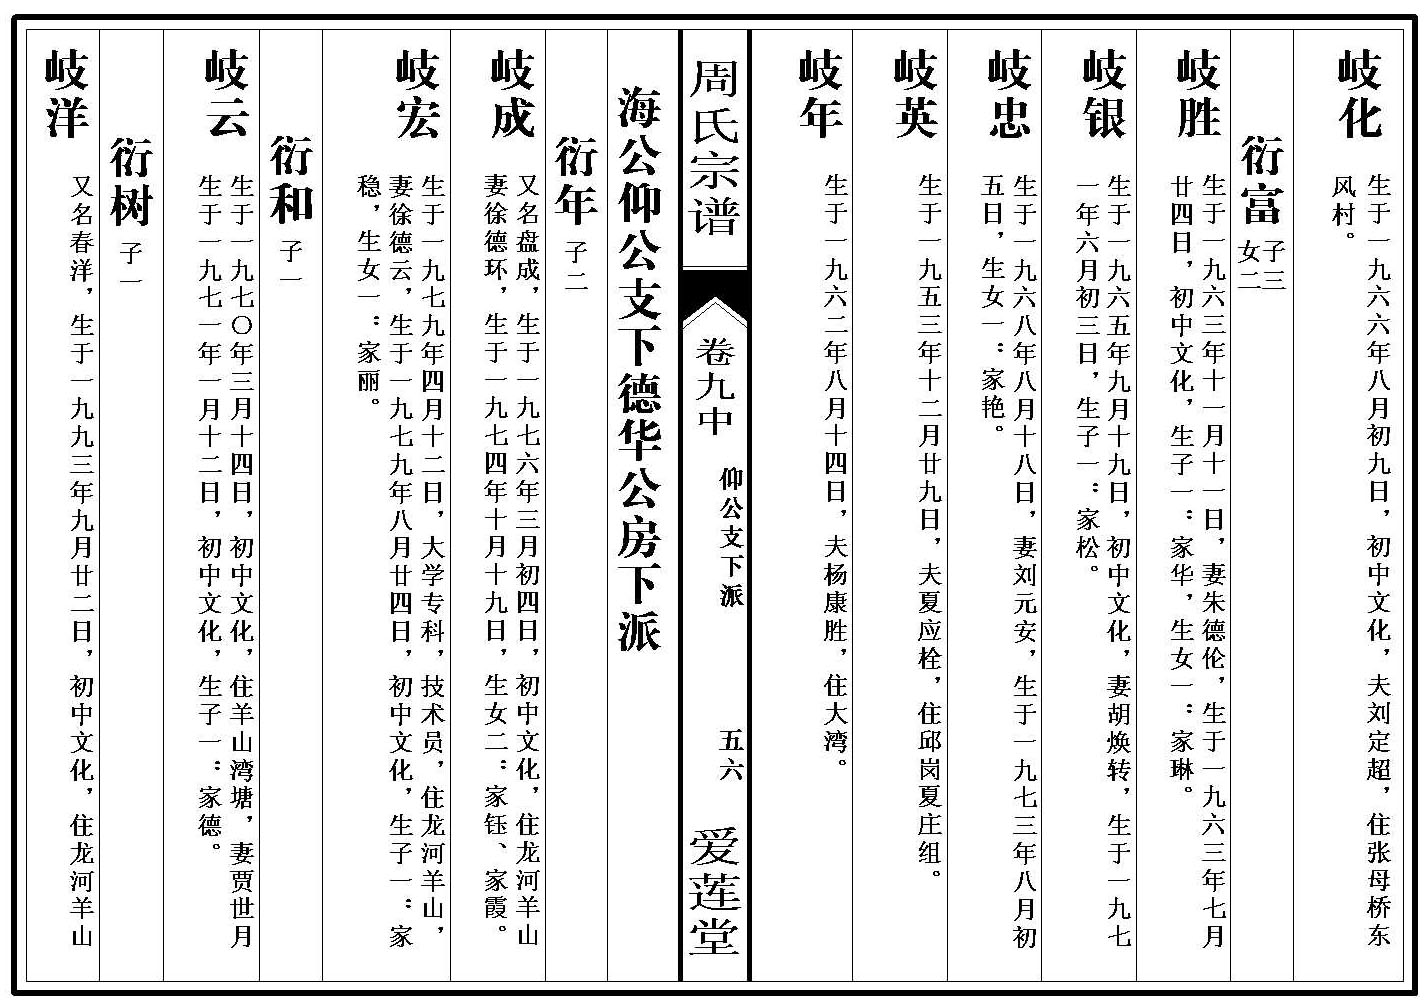 岐化
生于一九六六年八月初九日，初中文化，夫刘定超，住张母桥东
风村。
衍富
子三
女二
岐胜
生于一九六三年十一月十一日，妻朱德伦，生于一九六三年七月
廿四日，初中文化，生子一：家华，生女一：家琳。
岐银
生于一九六五年九月十九日，初中文化，妻胡焕转，生于一九七
一年六月初三日，生子一：家松。
岐忠
生于一九六八年八月十八日，妻刘元安，生于一九七三年八月初
五日，生女一：家艳。
岐英
生于一九五三年十二月廿九日，夫夏应栓，住邱岗夏庄组。
岐年
生于一九六二年八月十四日，夫杨康胜，住大湾。
周氏宗谱
卷九中
仰公支下派
五六
爱莲堂
海公仰公支下德华公房下派
衍年
子二
岐成
又名盘成，生于一九七六年三月初四日，初中文化，住龙河羊山
妻徐德环，生于一九七四年十月十九日，生女二：家钰、家霞。
岐宏
生于一九七九年四月十二日，大学专科，技术员，住龙河羊山，
妻徐德云，生于一九七九年八月廿四日，初中文化，生子一：家
稳，生女一：家丽。
衍和
子一
岐云
生于一九七〇年三月十四日，初中文化，住羊山湾塘，妻贾世月
生于一九七一年一月十二日，初中文化，生子一：家德。
衍树
子一
岐洋
又名春洋，生于一九九三年九月廿二日，初中文化，住龙河羊山